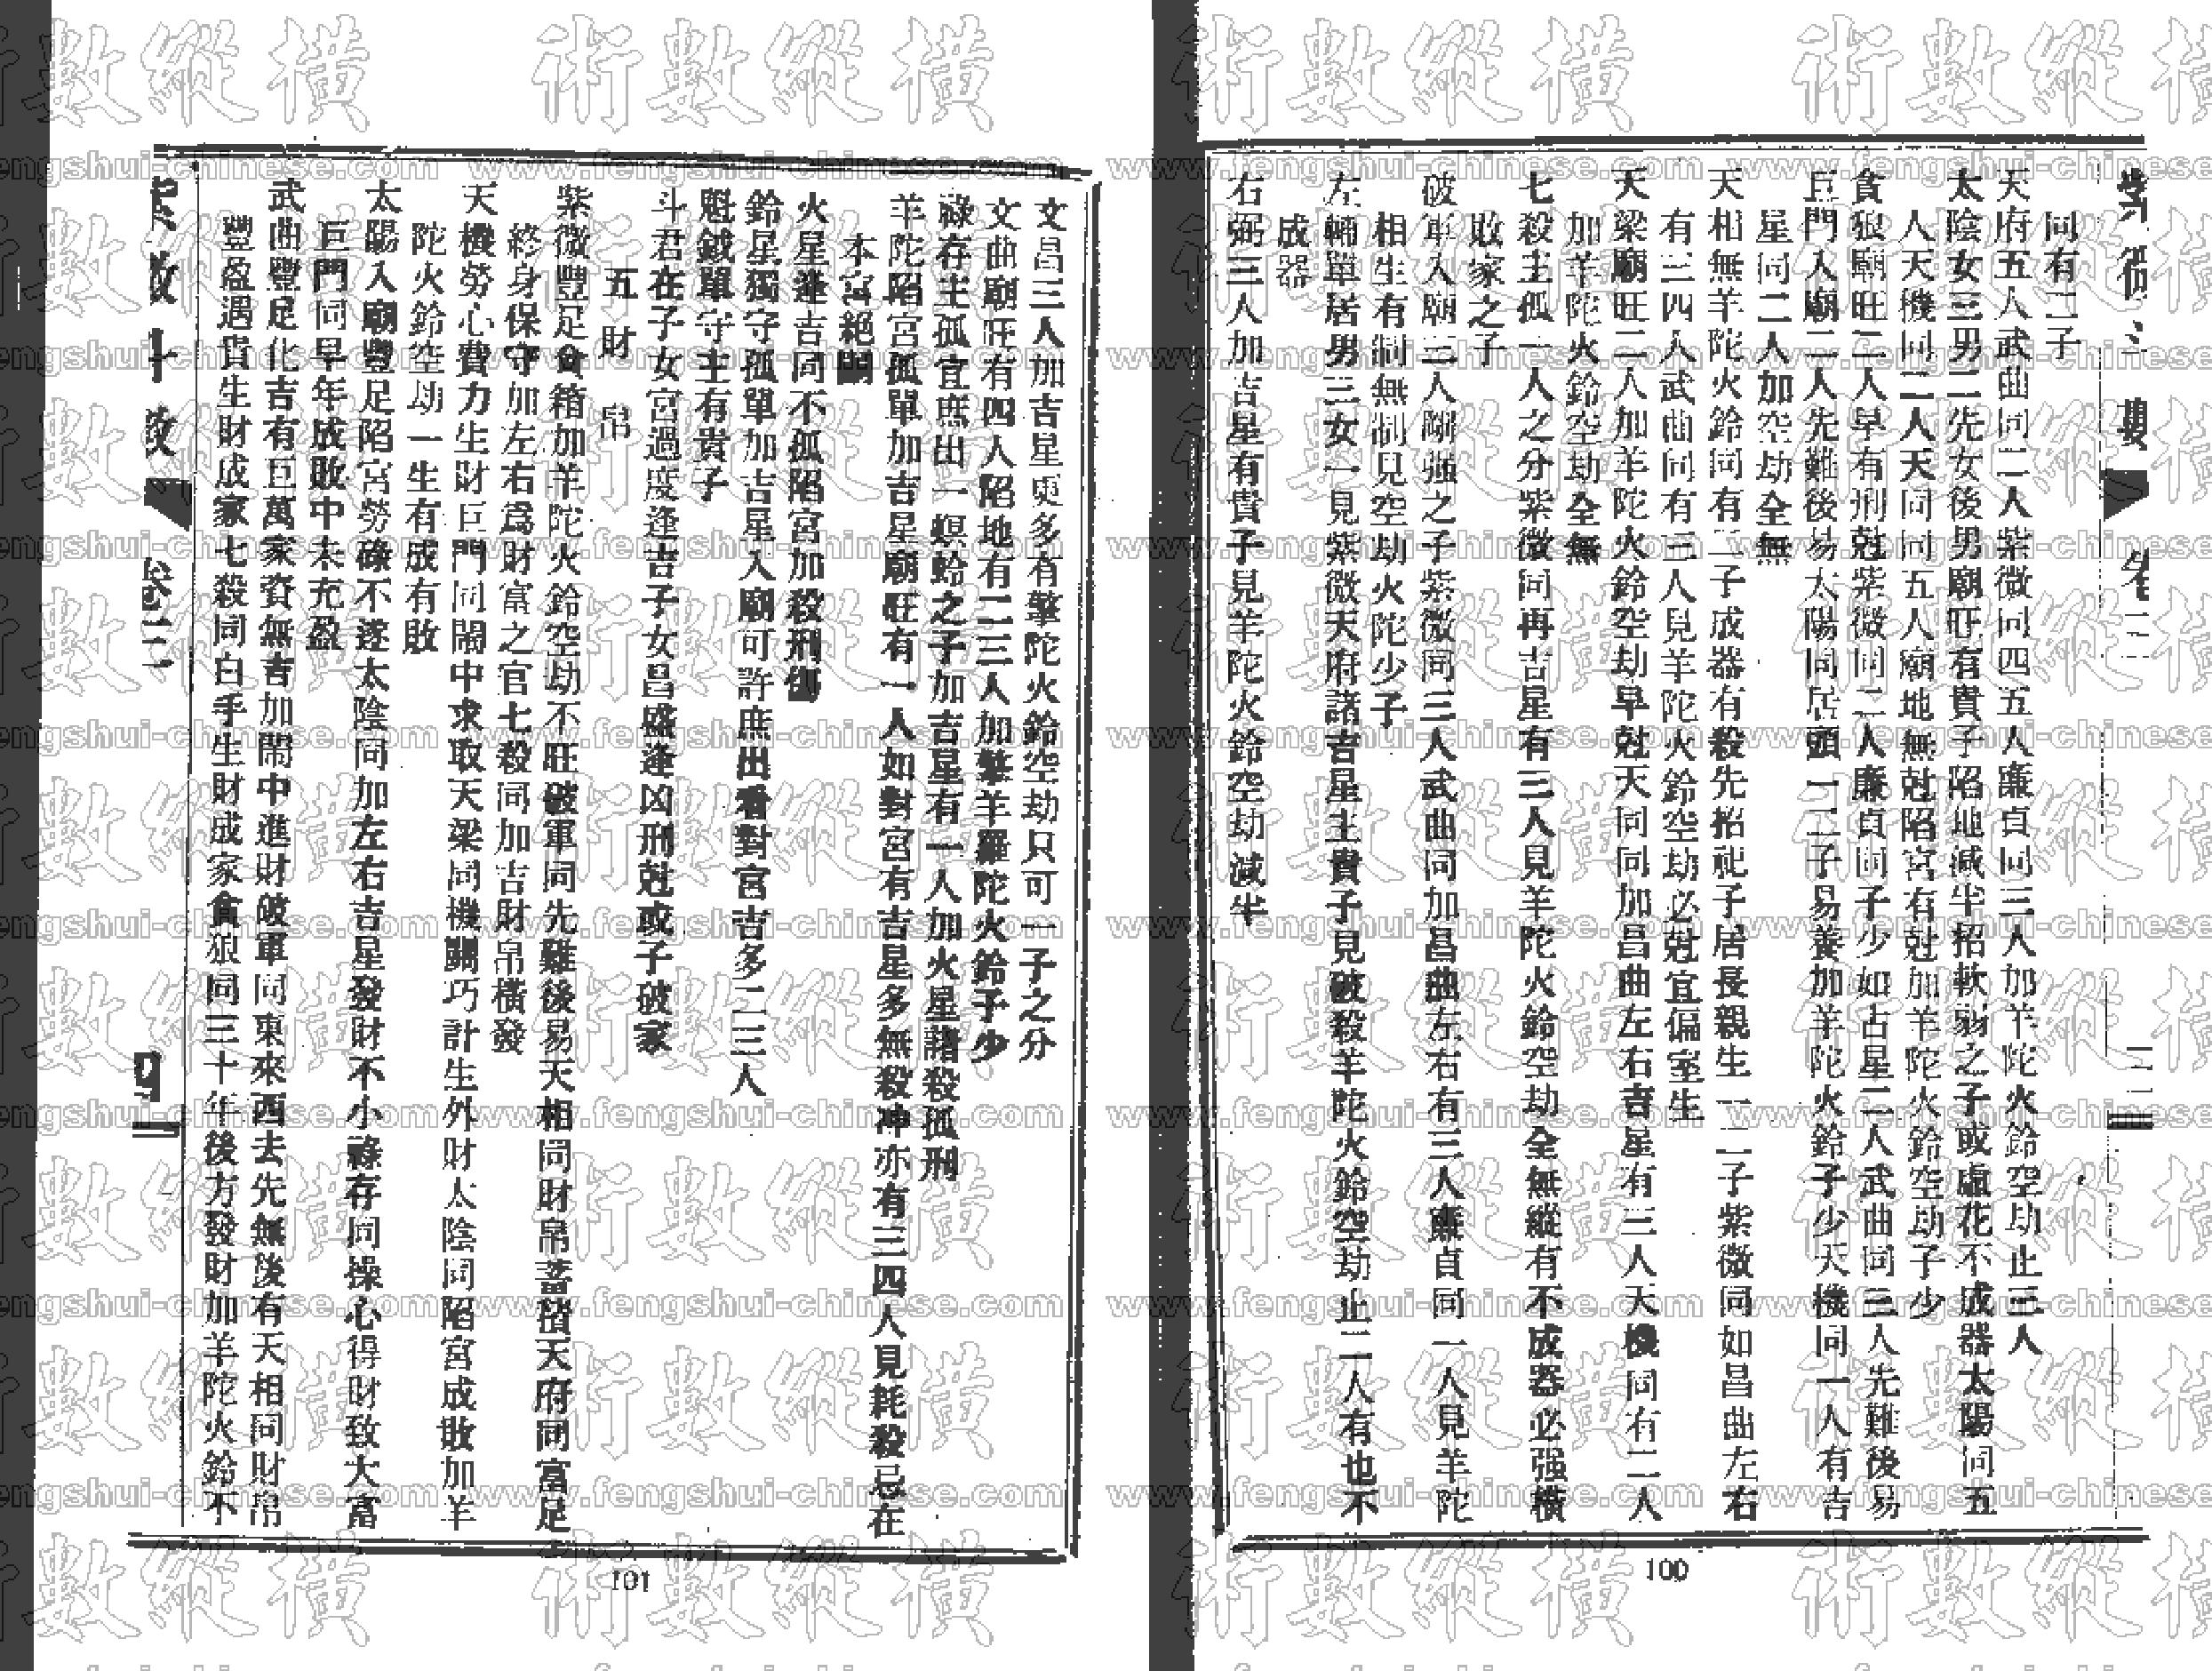 紫微斗數
卷三
三
同有二子
天府五人武曲同二人紫微同四五人廉貞同三人加羊陀火鈴空劫止三人
太陰女三男二先女後男廟旺有貴子陷地減半招軟弱之子或虛花不成器太陽同五
人天機同二人天同同五人廟地無尅陷宮有尅加羊陀火鈴空劫子少
貪狼廟旺二人早有刑尅紫微同二人廉貞同子少如吉星二人武曲同三人先難後易
巨門入廟二人先難後易太陽同居頭一二子易養加羊陀火鈴子少天機同一人有吉
星同二人加空劫全無
天相無羊陀火鈴同有二子成器有殺先招祀子居長親生一二子紫微同如昌曲左右
有三四人武曲同有三人見羊陀火鈴空劫必尅宜偏室生
天梁廟旺二人加羊陀火鈴空劫早尅天同同加昌曲左右吉星有三人天機同有二人
加羊陀火鈴空劫全無
七殺主孤一人之分紫微同再吉星有三人見羊陀火鈴空劫全無縱有不成器必强橫
敗家之子
破軍入廟三人剛强之子紫微同三人武曲同加昌曲左右有三人廉貞同一人見羊陀
相生有制無制見空劫火陀少子
左輔單居男三女一見紫微天府諸吉星主貴子見破殺羊陀火鈴空劫止二人有也不
成器
右弼三人加吉星有貴子見羊陀火鈴空劫減半
100
文昌三人加吉星更多有擎陀火鈴空劫只可一子之分
文曲廟旺有四人陷地有二三人加擎羊羅陀火鈴子少
祿存主孤宜庶出一螟蛉之子加吉星有一人加火星諸殺孤刑
羊陀陷宮孤單加吉星廟旺有一人如對宮有吉星多無殺冲亦有三四人見耗殺忌在
本宮絕嗣
火星逢吉同不孤陷宮加殺刑傷
鈴星獨守孤單加吉星入廟可許庶出看對宮吉多二三人
魁鉞單守主有貴子
斗君在子女宮過度逢吉子女昌盛逢凶刑尅或子破家
五 財帛
紫微豐足倉箱加羊陀火鈴空劫不旺破軍同先難後易天相同財帛蓄積天府同富足
終身保守加左右爲財富之官七殺同加吉財帛橫發
天機勞心費力生財巨門同鬧中求取天梁同機關巧計生外財太陰同陷宮成敗加羊
陀火鈴空劫一生有成有敗
太陽入廟豐足陷宮勞碌不遂太陰同加左右吉星發財不小祿存同操心得財致大富
巨門同早年成敗中末充盈
武曲豐足化吉有巨萬家資無吉加鬧中進財破軍同東來西去先無後有天相同財帛
豐盈遇貴生財成家七殺同白手生財成家貪狼同三十年後方發財加羊陀火鈴不
紫微斗數
卷三
四
101
術數縱橫
www.fengshui-chinese.com